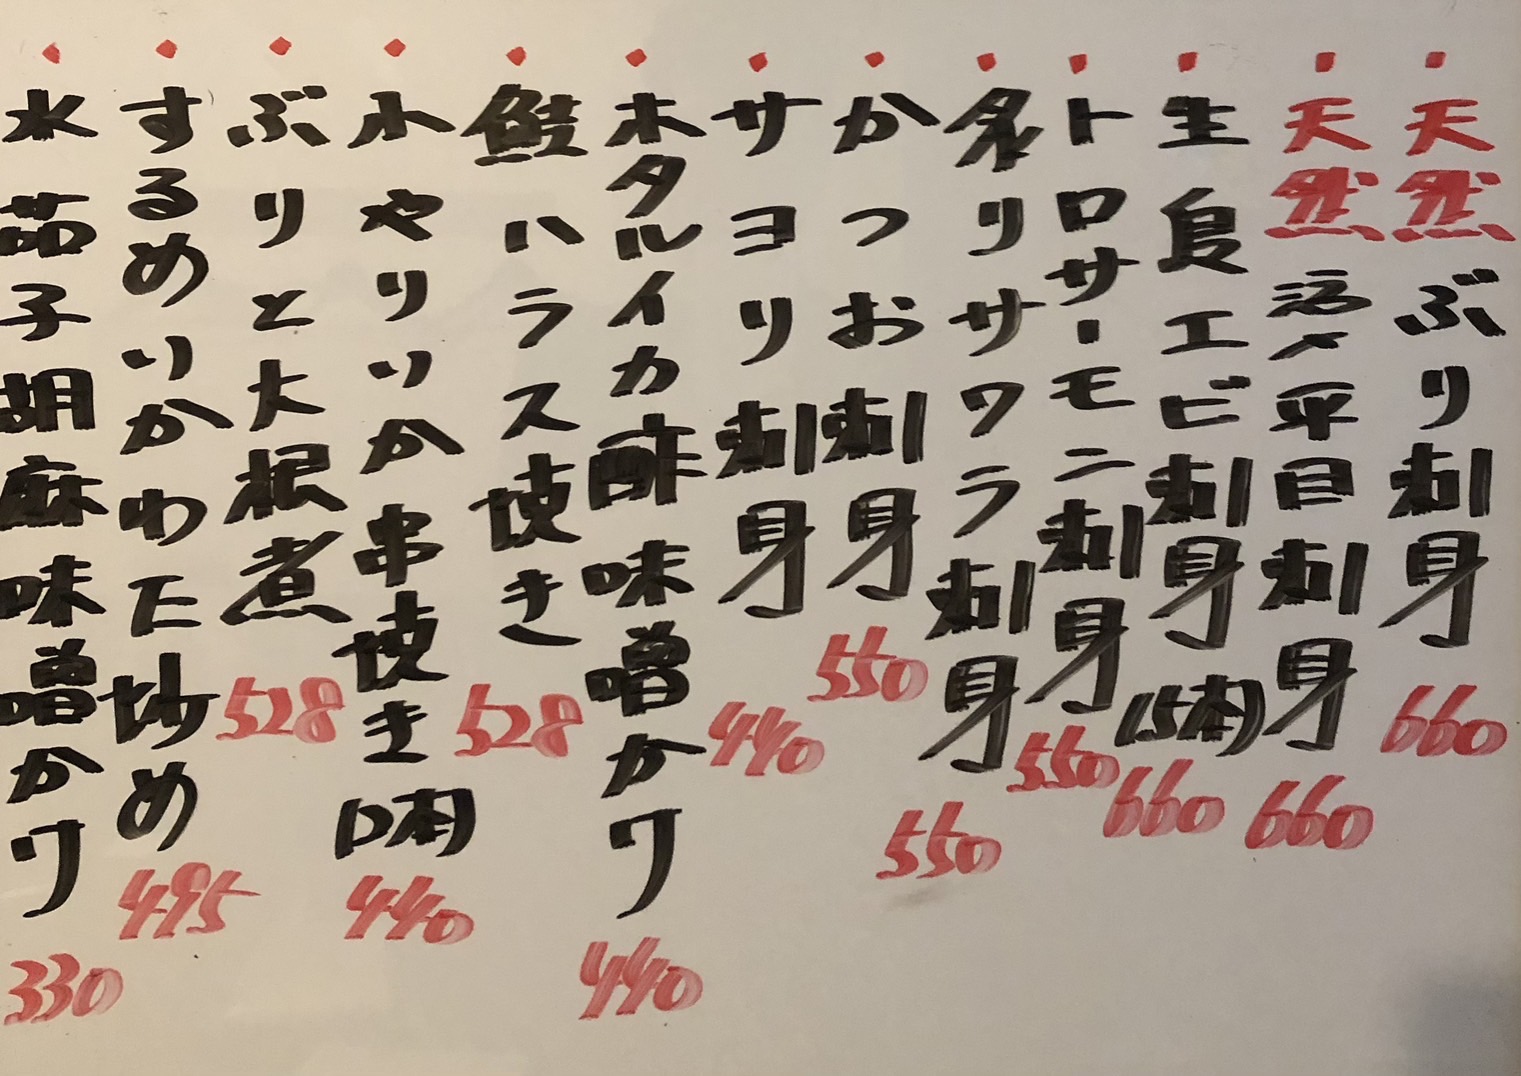 天然ぶり刺身 660
天然活〆平目刺身 660
生食エビ刺身(5本) 660
トロサーモン刺身 550
炙りサワラ刺身 550
かつお刺身 550
サヨリ刺身 440
ホタルイカ酢味噌かけ 440
鮭ハラス焼き 528
小やりいか串焼き(2本) 440
ぶりと大根煮 528
するめいかわた炒め 495
水茄子胡麻味噌かけ 330